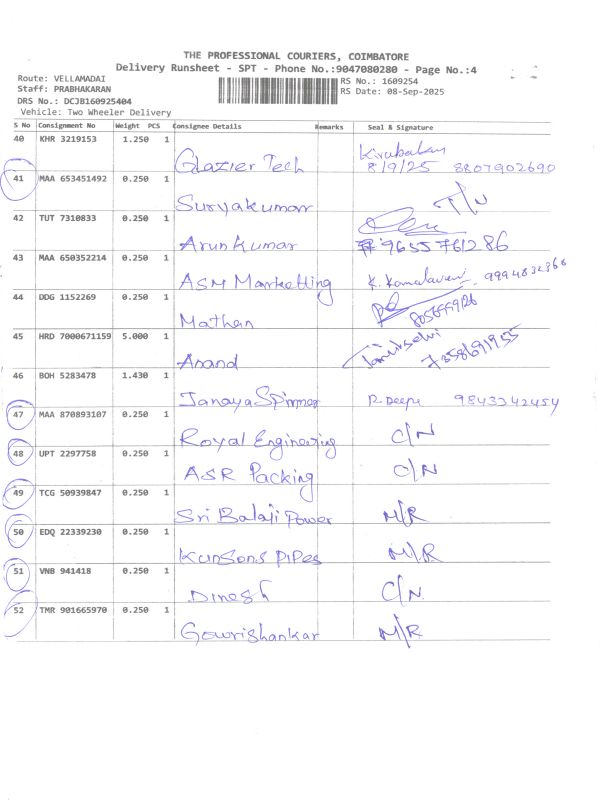 THE PROFESSIONAL COURIERS, COIMBATORE
Delivery Runsheet - SPT - Phone No.:9047080280 - Page No.:4
Route: VELLAMADAI
Staff: PRABHAKARAN
DRS No.: DCJB160925404
Vehicle: Two Wheeler Delivery
RS No.: 1609254
RS Date: 08-Sep-2025
S No Consignment No Weight PCS Consignee Details Remarks Seal & Signature
40 KHR 3219153 1.250 1 Glazier Tech Kirubakan 8/9/25 8807902690
41 MAA 653451492 0.250 1 Suryakumar T/N
42 TUT 7310833 0.250 1 Arunkumar 9655761286
43 MAA 650352214 0.250 1 ASM Marketting K. Kamalaveni 9994832368
44 DDG 1152269 0.250 1 Mathan
45 HRD 7000671159 5.000 1 Anand Tamilselvi 7358691955
46 BOH 5283478 1.430 1 Janaya Spinner R. Deepa 9843342454
47 MAA 870893107 0.250 1 Royal Engineering C/N
48 UPT 2297758 0.250 1 ASR Packing C/N
49 TCG 50939847 0.250 1 Sri Balaji Power M/R
50 EDQ 22339230 0.250 1 Kunsons Pipes M/R
51 VNB 941418 0.250 1 Dinesh C/N.
52 TMR 901665970 0.250 1 Gowrishankar M/R